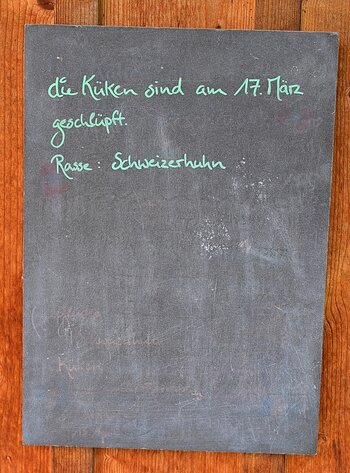 die Küken sind am 17. März
geschlüpft.
Rasse: Schweizerhuhn